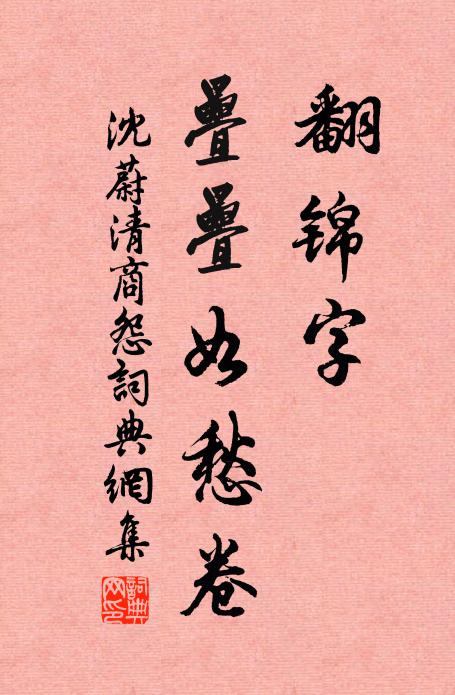 翻锦字
疊疊如愁卷
沈蔚清商怨詞典網集
詞典網印